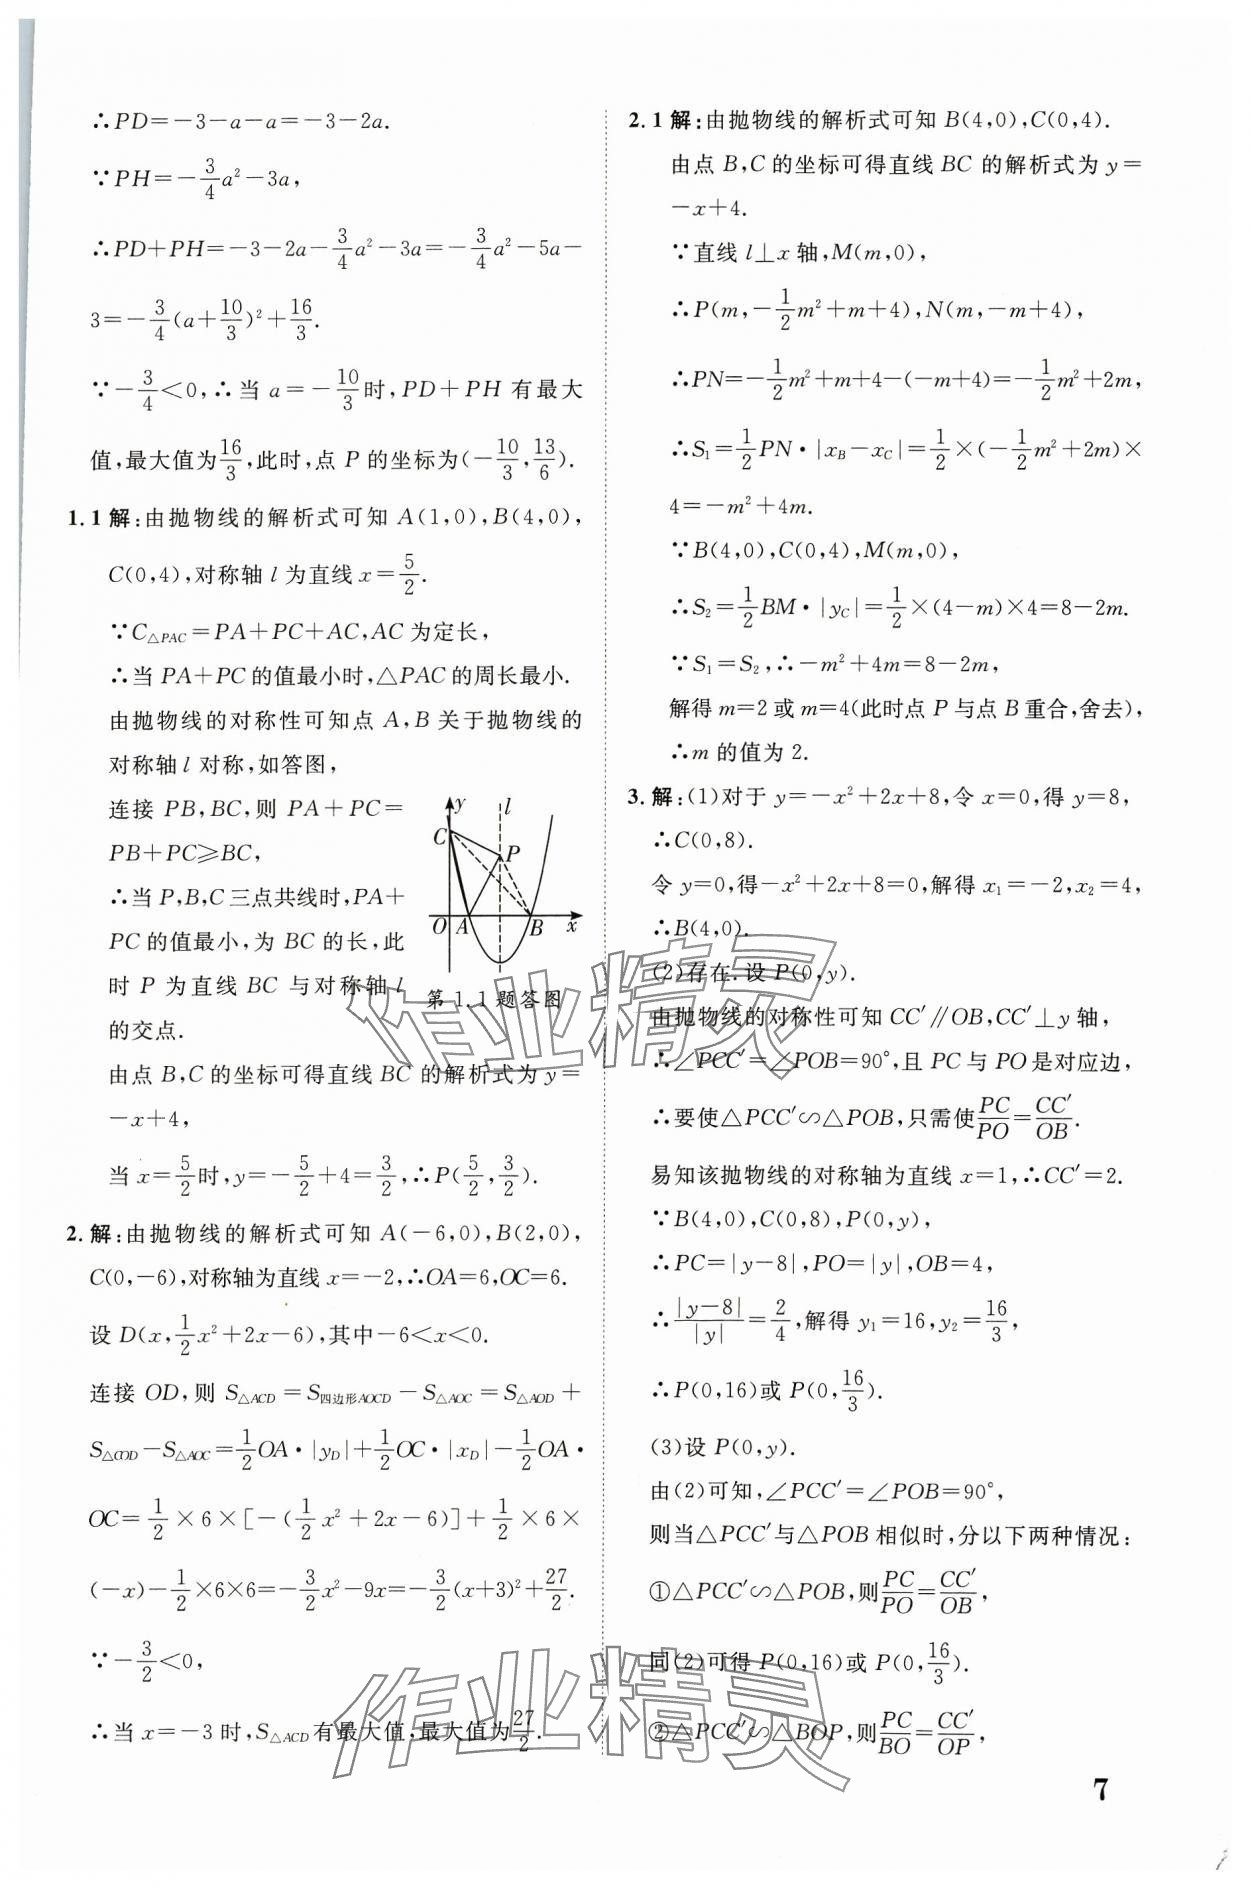 ∴PD=-3-a-a=-3-2a.
∵PH=-3/4a²-3a,
∴PD+PH=-3-2a-3/4a²-3a=-3/4a²-5a-
3=-3/4(a+10/3)²+16/3.
∵-3/4<0,∴当 a=-10/3时,PD+PH 有最大
值,最大值为16/3,此时,点 P 的坐标为(-10/3,13/6).
1.1 解:由抛物线的解析式可知 A(1,0),B(4,0),
C(0,4),对称轴 l 为直线 x=5/2.
∵C△PAC=PA+PC+AC,AC 为定长,
∴当 PA+PC 的值最小时,△PAC 的周长最小.
由抛物线的对称性可知点 A,B 关于抛物线的
对称轴 l 对称,如答图,
连接 PB,BC,则 PA+PC=
PB+PC≥BC,
∴当 P,B,C 三点共线时,PA+
PC 的值最小,为 BC 的长,此
时 P 为直线 BC 与对称轴 l
的交点.
y
l
C
P
O
A
B
x
第 1.1 题答图
由点 B,C 的坐标可得直线 BC 的解析式为 y=
-x+4,
当 x=5/2时,y=-5/2+4=3/2,∴P(5/2,3/2).
2. 解:由抛物线的解析式可知 A(-6,0),B(2,0),
C(0,-6),对称轴为直线 x=-2,∴OA=6,OC=6.
设 D(x,1/2x²+2x-6),其中-6<x<0.
连接 OD,则 S△ACD=S四边形AOCD-S△AOC=S△AOD+
S△COD-S△AOC=1/2OA·|yD|+1/2OC·|xD|-1/2OA·
OC=1/2×6×[-(1/2x²+2x-6)]+1/2×6×
(-x)-1/2×6×6=-3/2x²-9x=-3/2(x+3)²+27/2.
∵-3/2<0,
∴当 x=-3 时,S△ACD有最大值,最大值为27/2.
2.1 解:由抛物线的解析式可知 B(4,0),C(0,4).
由点 B,C 的坐标可得直线 BC 的解析式为 y=
-x+4.
∵直线 l⊥x 轴,M(m,0),
∴P(m,-1/2m²+m+4),N(m,-m+4),
∴PN=-1/2m²+m+4-(-m+4)=-1/2m²+2m,
∴S₁=1/2PN·|xB-xC|=1/2×(-1/2m²+2m)×
4=-m²+4m.
∵B(4,0),C(0,4),M(m,0),
∴S₂=1/2BM·|yC|=1/2×(4-m)×4=8-2m.
∵S₁=S₂,∴-m²+4m=8-2m,
解得 m=2 或 m=4(此时点 P 与点 B 重合,舍去),
∴m 的值为 2.
3. 解:(1)对于 y=-x²+2x+8,令 x=0,得 y=8,
∴C(0,8).
令 y=0,得-x²+2x+8=0,解得 x₁=-2,x₂=4,
∴B(4,0).
(2)存在.设 P(0,y).
由抛物线的对称性可知 CC′∥OB,CC′⊥y 轴,
∴∠PCC′=∠POB=90°,且 PC 与 PO 是对应边,
∴要使△PCC′∽△POB,只需使PC/PO=CC′/OB.
易知该抛物线的对称轴为直线 x=1,∴CC′=2.
∵B(4,0),C(0,8),P(0,y),
∴PC=|y-8|,PO=|y|,OB=4,
∴|y-8|/|y|=2/4,解得 y₁=16,y₂=16/3,
∴P(0,16)或 P(0,16/3).
(3)设 P(0,y).
由(2)可知,∠PCC′=∠POB=90°,
则当△PCC′与△POB 相似时,分以下两种情况:
①△PCC′∽△POB,则PC/PO=CC′/OB,
同(2)可得 P(0,16)或 P(0,16/3).
②△PCC′∽△BOP,则PC/BO=CC′/OP,
作业精灵
作业精灵
7